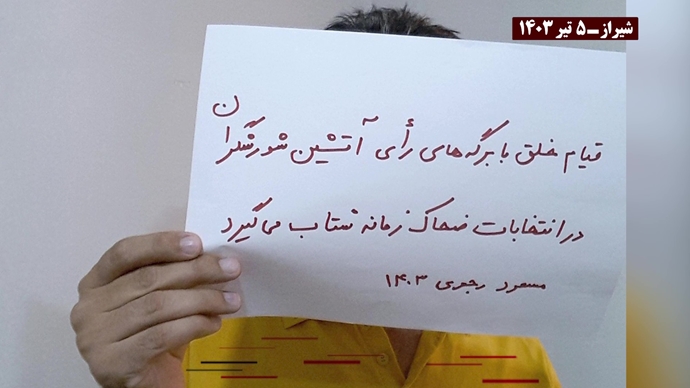 شیراز ـ ۵ تیر ۱۴۰۳
قیام خلق با برگه‌های رأی آتشین شورشگران
در انتخابات ضحاک زمانه شتاب می‌گیرد
مسعود رجوی ۱۴۰۳